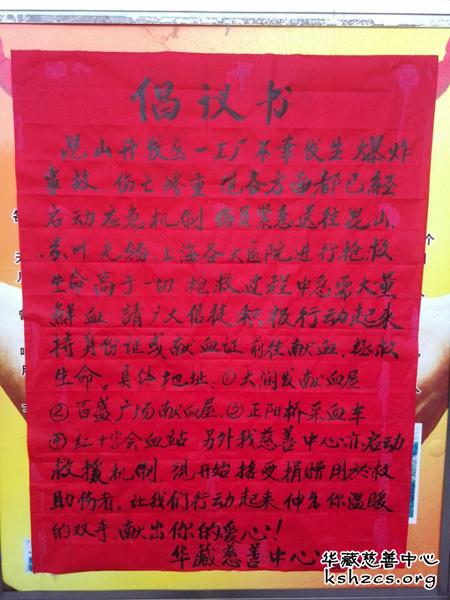 倡议书
昆山开发区一工厂不幸发生爆炸
事故，伤亡惨重，现各方面都已经
启动应急机制，伤员紧急送往昆山、
苏州、无锡、上海各大医院进行抢救
生命高于一切，抢救过程中急需大量
鲜血，請广大信徒积极行动起来
持身份证或献血证前往献血，拯救
生命。具体地址：①大润发献血屋
②百盛广场献血屋 ③正阳桥采血车
④红十字会血站 另外我慈善中心亦启动
救援机制，現开始接受捐赠用於救
助伤者。让我们行动起来伸出你温暖
的双手，献出你的爱心！
华藏慈善中心
华藏慈善中心
kshzcs.org